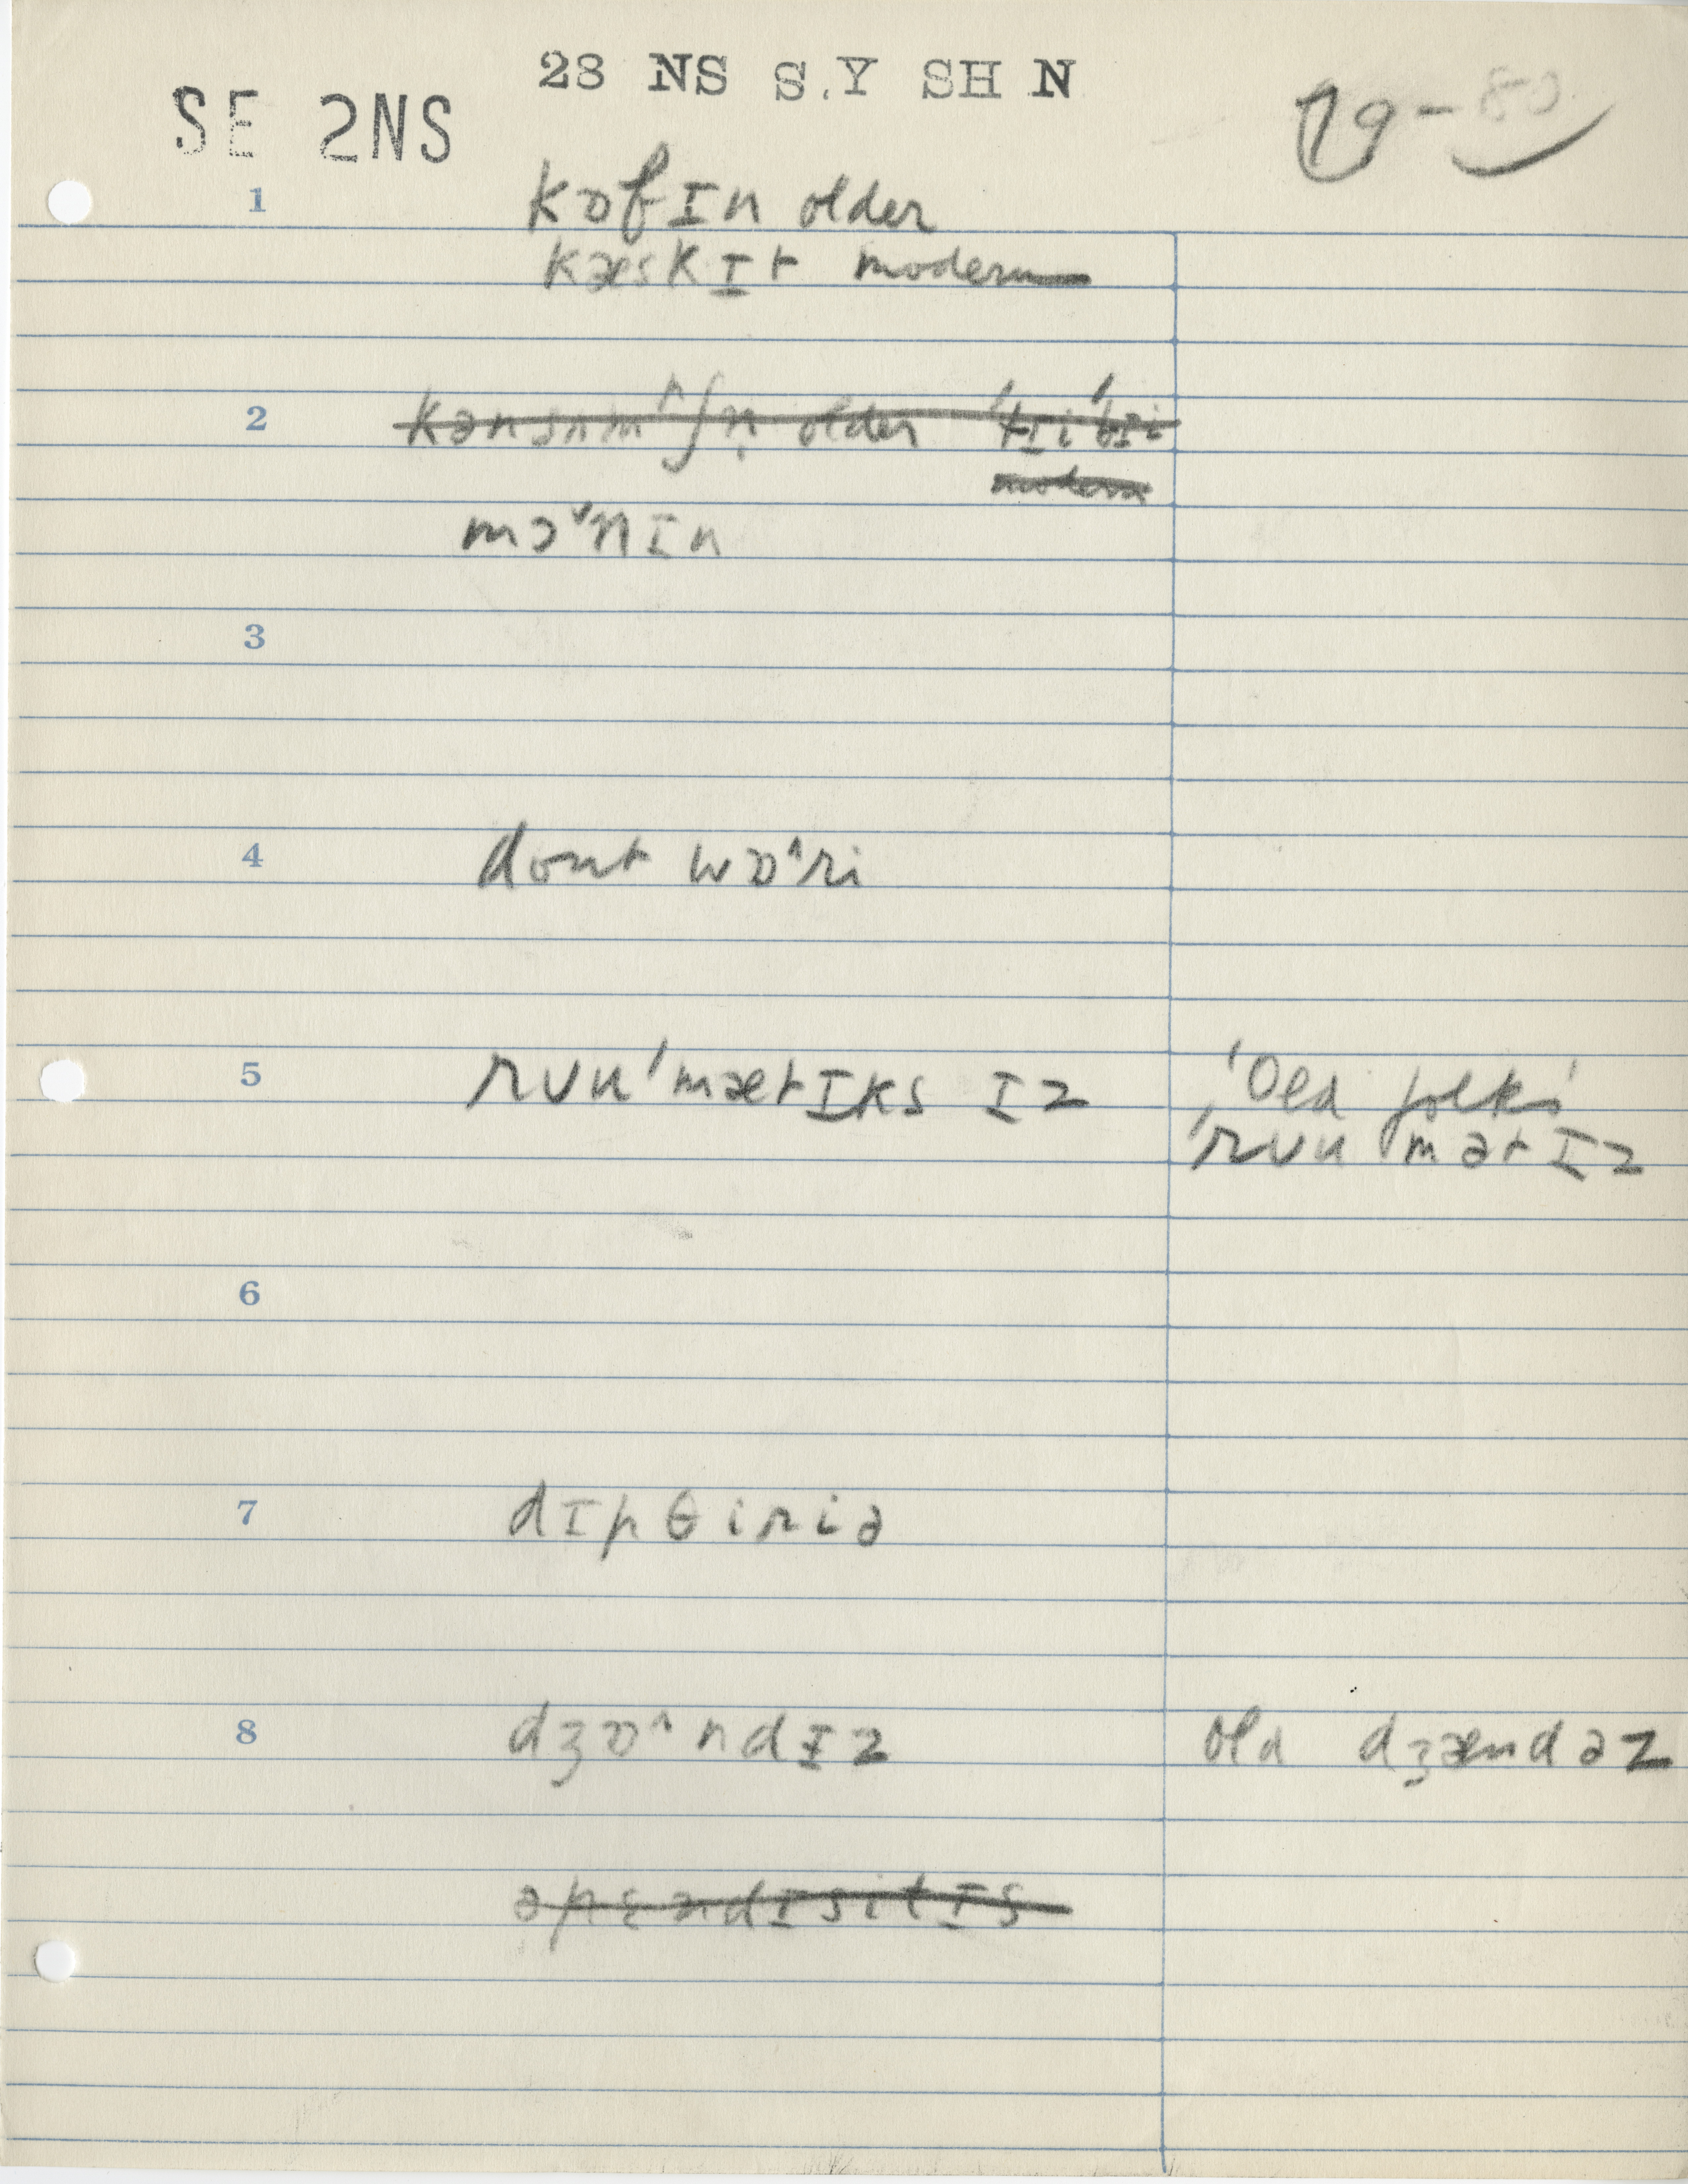 28 NS S.Y SH N
SE 2NS
79-80
1 kɒfɪn older
kæskɪt modern
2 kənsʌmʌʃn̩ older 'tɪi'bɪi
modern
mɔ˅nɪn
3
4 dont wɒ˄ri
5 rʊu'mætɪks ɪz 'Old folks'
'rʊu mətɪz
6
7 dɪpθiriə
8 dʒɒ˄ndɪz old dʒændəz
əpɛndɪsitɪs